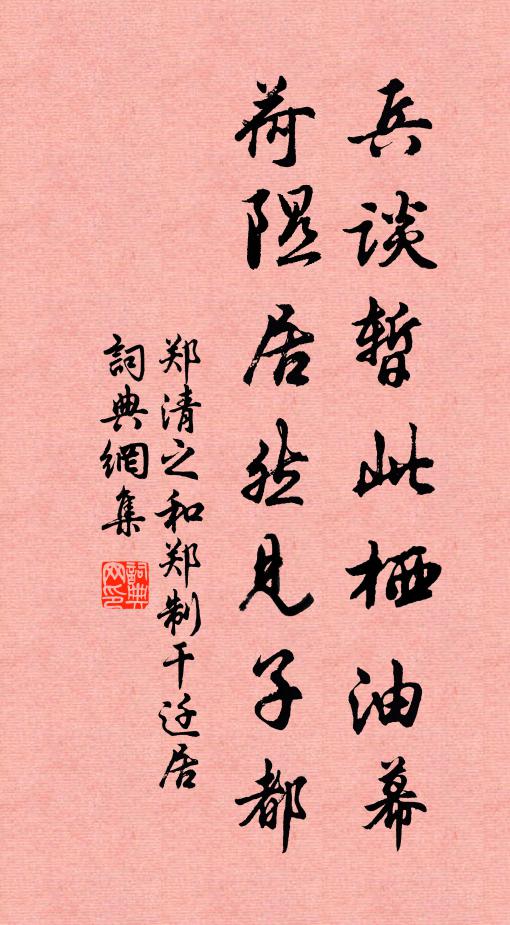 兵谈暂此栖油幕
荷隰居然见子都
郑清之和郑制干迁居
詞典網集
詞典网印